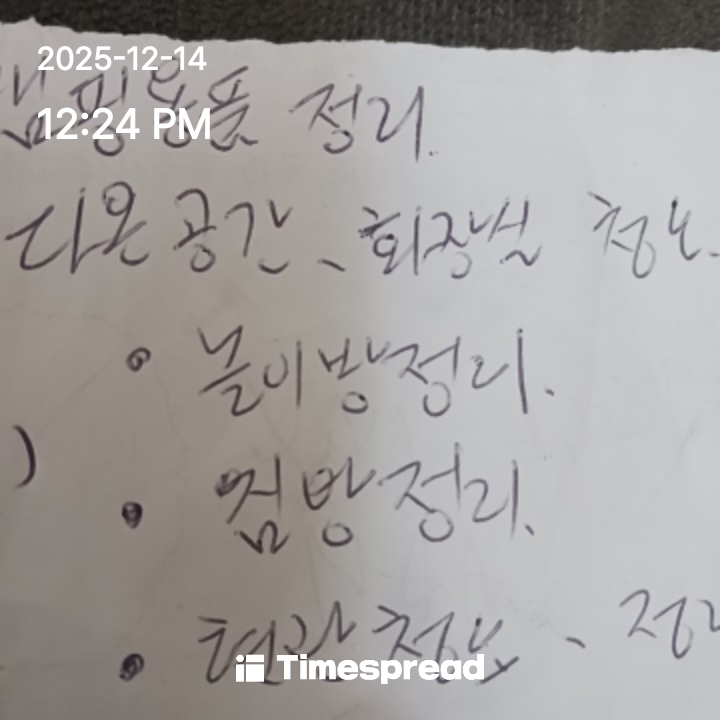 2025-12-14
12:24 PM
캠핑용품 정리.
다온공간、화장실 청소.
• 놀이방정리.
)
• 짐방정리.
• 현관청소、정리
Timespread